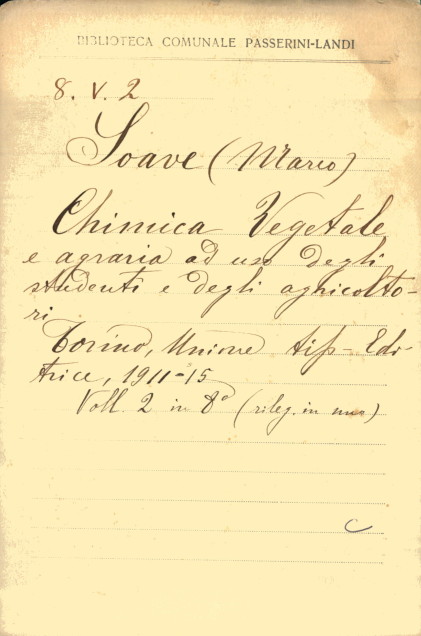 BIBLIOTECA COMUNALE PASSERINI-LANDI
8. V. 2
Soave (Marco)
Chimica Vegetale
e agraria ad uso degli
studenti e degli agricolto-
ri
Torino, Unione tip-Edi-
trice, 1911-15
Voll. 2 in 8° (rileg. in uno)
C